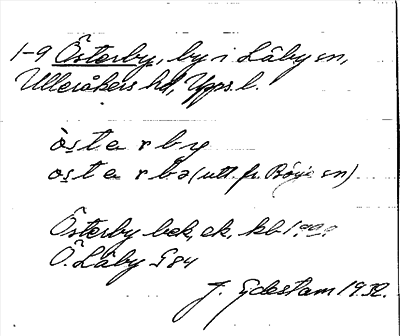 1-9 Österby, by i Läby sn,
Ulleråkers hd, Upps. l.
òste r by
oste r bə (utt. fr. Börje sn)
Österby bek, ek, kb 1999
Ö. Läby G 84
J. Edestam 1932.